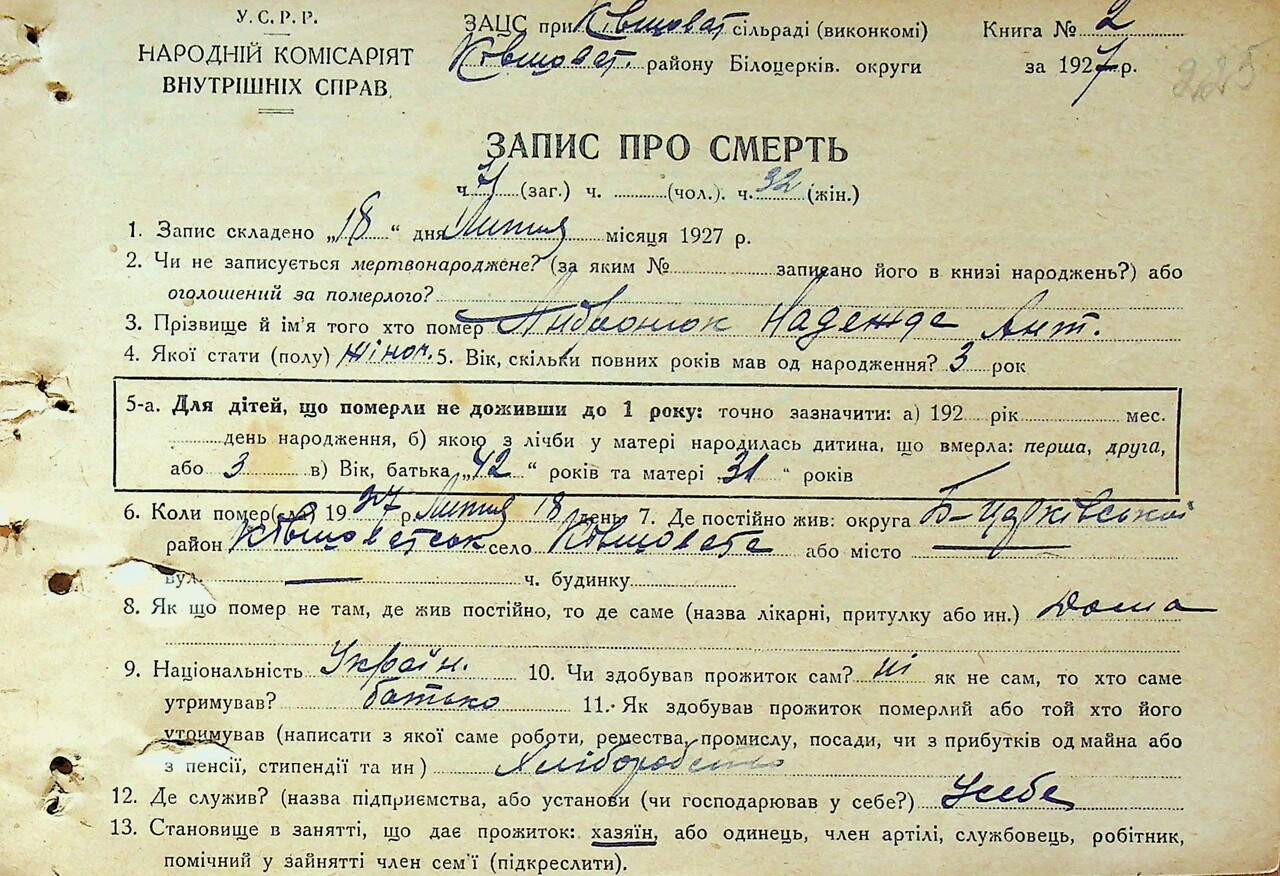 У.С.Р.Р.
НАРОДНІЙ КОМІСАРІЯТ
ВНУТРІШНІХ СПРАВ
ЗАЦС при Ківшоват сільраді (виконкомі)
Ківшоват. району Білоцерків. округи
Книга № 2
за 1927 р.
225
ЗАПИС ПРО СМЕРТЬ
ч. (заг.) ч. (чол.). ч. 32 (жін.)
1. Запис складено „18“ дня Липня місяця 1927 р.
2. Чи не записується мертвонароджене? (за яким № записано його в книзі народжень?) або
оголошений за померлого?
3. Прізвище й ім'я того хто помер Надежда Ант.
4. Якої стати (полу) жіноч. 5. Вік, скільки повних років мав од народження? 3 рок
5-а. Для дітей, що померли не доживши до 1 року: точно зазначити: а) 192 рік мес.
день народження, б) якою з лічби у матері народилась дитина, що вмерла: перша, друга,
або 3 в) Вік, батька „42“ років та матері „31“ років
6. Коли помер(ла) 1927 р. Липня 18 день 7. Де постійно жив: округа Б-Церківської
район Ківшоватськ село Ківшовата або місто
вул. ч. будинку
8. Як що помер не там, де жив постійно, то де саме (назва лікарні, притулку або ин.) Дома
9. Національність Україн. 10. Чи здобував прожиток сам? ні як не сам, то хто саме
утримував? батько 11. Як здобував прожиток померлий або той хто його
утримував (написати з якої саме роботи, ремества, промислу, посади, чи з прибутків од майна або
з пенсії, стипендії та ин) Хліборобство
12. Де служив? (назва підприємства, або установи (чи господарював у себе?) У себе
13. Становище в занятті, що дає прожиток: хазяїн, або одинець, член артілі, службовець, робітник,
помічний у зайнятті член сем'ї (підкреслити).